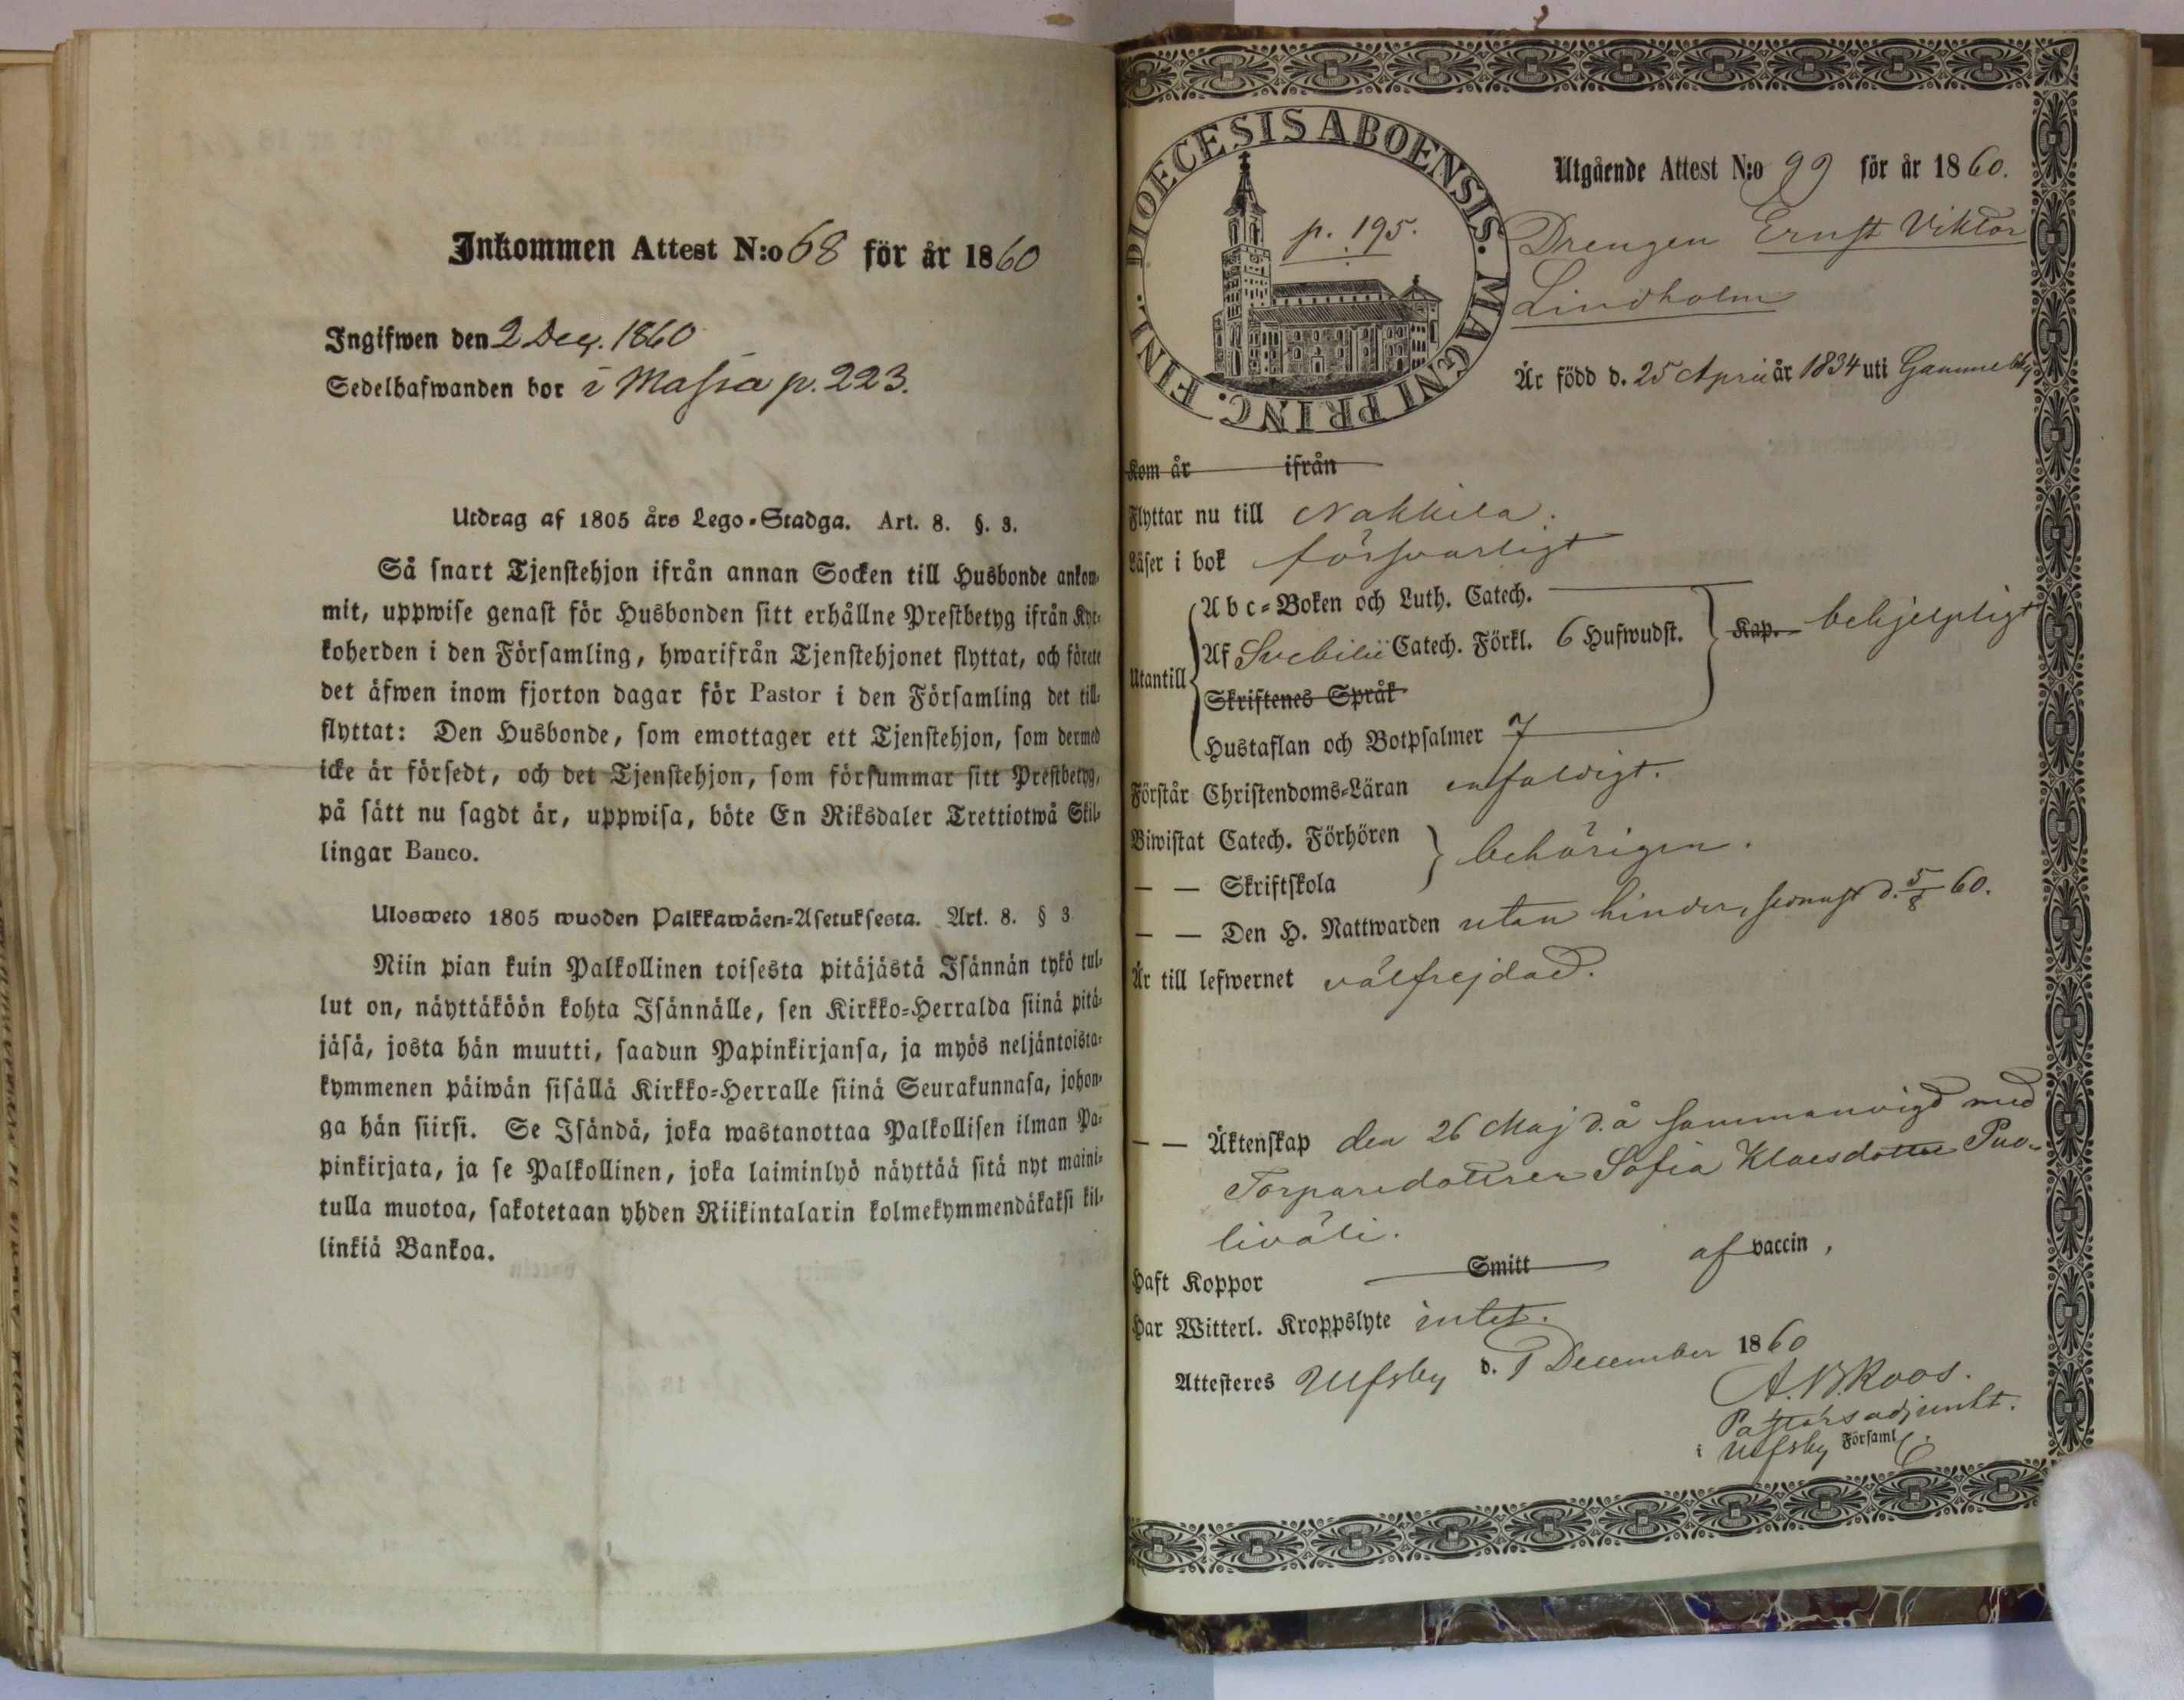 Inkommen Attest N:o 68 för år 1860
Ingifwen den 2 Dec. 1860
Sedelhafwanden bor i Massia p. 223.
Utdrag af 1805 års Lego-Stadga. Art. 8. §. 3.
Så snart Tjenstehjon ifrån annan Socken till Husbonde ankom-
mit, uppwise genast för Husbonden sitt erhållne Prestbetyg ifrån Kyr-
koherden i den Församling, hwarifrån Tjenstehjonet flyttat, och förete
det äfwen inom fjorton dagar för Pastor i den Församling det till-
flyttat: Den Husbonde, som emottager ett Tjenstehjon, som dermed
icke är försedt, och det Tjenstehjon, som försummar sitt Prestbetyg,
på sätt nu sagdt är, uppwisa, böte En Riksdaler Trettiotwå Skil-
lingar Banco.
Ulosweto 1805 wuoden Palkkawäen-Asetuksesta. Art. 8. § 3
Niin pian kuin Palkollinen toisesta pitäjästä Isännän tykö tul-
lut on, näyttäköön kohta Isännälle, sen Kirkko-Herralda siinä pitä-
jäsä, josta hän muutti, saadun Papinkirjansa, ja myös neljäntoista-
kymmenen päiwän sisällä Kirkko-Herralle siinä Seurakunnasa, johon-
ga hän siirsi. Se Isändä, joka wastanottaa Palkollisen ilman Pa-
pinkirjata, ja se Palkollinen, joka laiminlyö näyttää sitä nyt maini-
tulla muotoa, sakotetaan yhden Riikintalarin kolmekymmendäkaksi kil-
linkiä Bankoa.
DIOECESIS ABOENSIS. MAGNI PRINC. FINL.
p. 195.
Utgående Attest N:o 99 för år 1860.
Drengen Ernst Viktor
Lindholm
Är född d. 25 April år 1834 uti Gammelby
Kom år ifrån
Flyttar nu till Nakkila.
Läser i bok försvarligt
Utantill
Abc-Boken och Luth. Catech.
Af Svebilii Catech. Förkl. 6 Hufwudst. Kap. behjelpligt
Skriftenes Språk
Hustaflan och Botpsalmer 7
Förstår Christendoms-Läran enfaldigt.
Biwistat Catech. Förhören
behörigen.
— — Skriftskola
— — Den H. Nattwarden utan hinder, senast d. 5/8 60.
Är till lefwernet välfrejdad.
— — Äktenskap den 26 Maj d.å sammanvigd med
Torparedotren Sofia Klaesdotter Puo-
liväli.
Haft Koppor Smitt af vaccin,
Har Witterl. Kroppslyte intet.
Attesteres Ulfsby d. 1 December 1860
A. B. Roos.
Pastorsadjunkt.
i Ulfsby Församl.